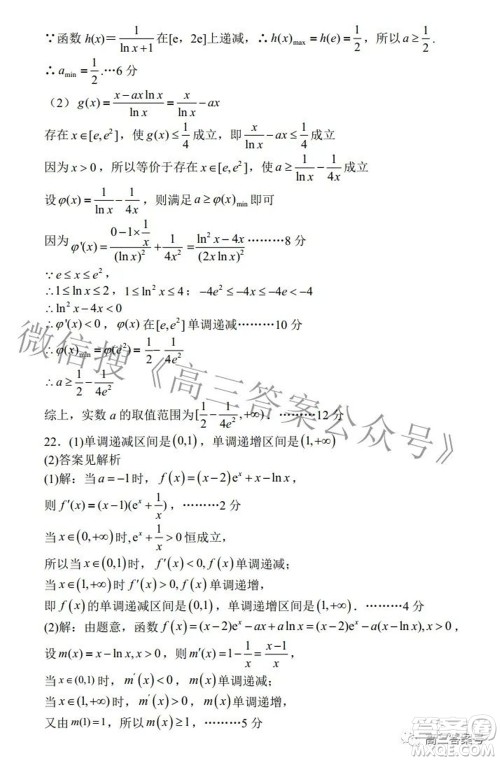 ∵函数 h(x)=1/(ln x+1)在[e，2e]上递减，∴h(x)max=h(e)=1/2，所以a≥1/2.
∴amin=1/2.…6 分
（2）g(x)=(x-ax ln x)/ln x=x/ln x-ax
存在x∈[e,e²]，使g(x)≤1/4成立，即x/ln x-ax≤1/4成立
因为x>0，所以等价于存在x∈[e,e²]，使a≥1/ln x-1/4x成立
设φ(x)=1/ln x-1/4x，则满足a≥φ(x)min即可
因为φ'(x)=(0-1×1/x)/(ln x)²+1/4x²=(ln²x-4x)/(2x ln x)²………8 分
∵e≤x≤e²，
∴1≤ln x≤2，1≤ln²x≤4；-4e²≤-4x≤-4e<-4
∴ln²x-4x<0
∴φ'(x)<0，φ(x)在[e,e²]单调递减………10 分
∴φ(x)min=φ(e²)=1/2-1/4e²
∴a≥1/2-1/4e²
综上，实数 a 的取值范围为[1/2-1/4e²,+∞).………12 分
22．(1)单调递减区间是(0,1)，单调递增区间是(1,+∞)
(2)答案见解析
(1)解：当a=-1时，f(x)=(x-2)eˣ+x-ln x，
则f'(x)=(x-1)(eˣ+1/x)，………2 分
当x∈(0,+∞)时,eˣ+1/x>0恒成立，
所以当x∈(0,1)时，f'(x)<0,f(x)单调递减；
当x∈(1,+∞)时f'(x)>0,f(x)单调递增，
即f(x)的单调递减区间是(0,1)，单调递增区间是(1,+∞)．………4 分
(2)解：由题意，函数f(x)=(x-2)eˣ-ax+a ln x=(x-2)eˣ-a(x-ln x),x∈(0,+∞)，
设m(x)=x-ln x,x>0，则m'(x)=1-1/x=(x-1)/x，
当x∈(0,1)时，m'(x)<0，m(x)单调递减；
当x∈(1,+∞)时，m'(x)>0，m(x)单调递增，
又由m(1)=1，所以m(x)≥1，………5 分
微信搜《高三答案公众号》
高三答案号